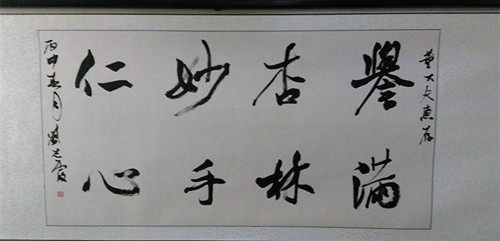 董大夫惠存
誉满
杏林
妙手
仁心
丙申春月